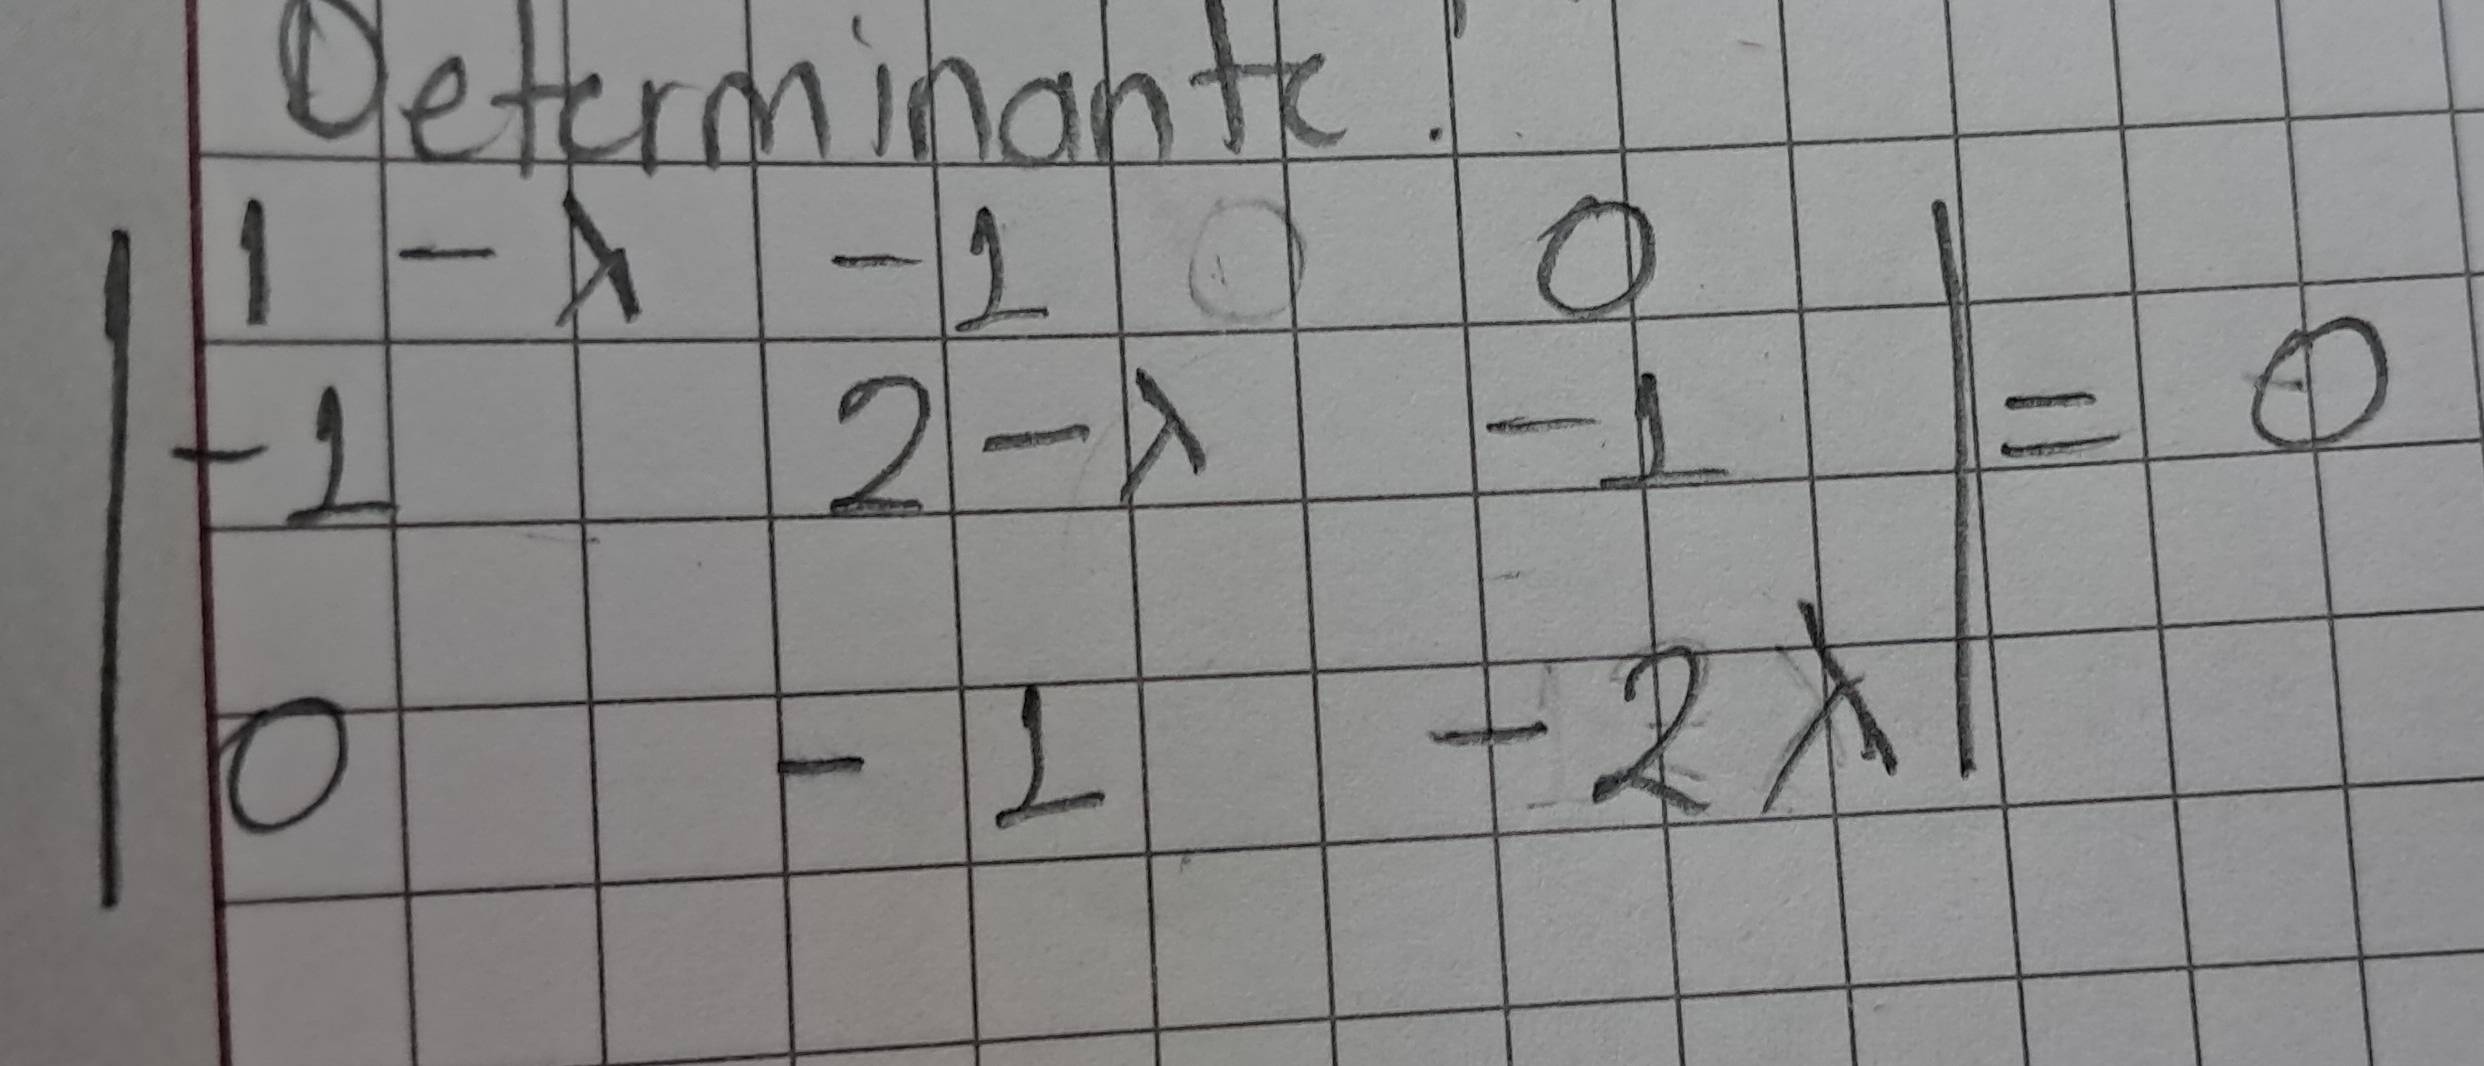 Determinante.
1 - λ -1 0
-1 2 - λ -1 = 0
0 -1 -2λ